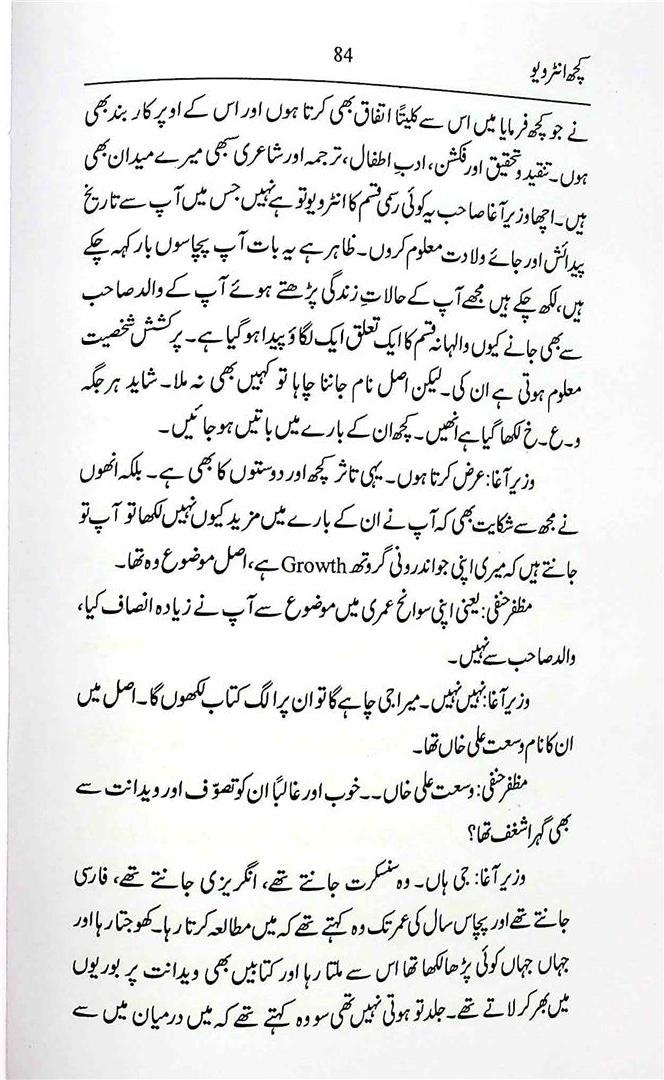 کچھ انٹرویو
84
نے جو کچھ فرمایا میں اس سے کلیتًا اتفاق بھی کرتا ہوں اور اس کے اوپر کار بند بھی
ہوں۔ تنقید و تحقیق اور فکشن، ادبِ اطفال، ترجمہ اور شاعری سبھی میرے میدان بھی
ہیں۔ اچھا وزیر آغا صاحب یہ کوئی رسمی قسم کا انٹرویو تو ہے نہیں جس میں آپ سے تاریخ
پیدائش اور جائے ولادت معلوم کروں۔ ظاہر ہے یہ بات آپ پچاسوں بار کہہ چکے
ہیں، لکھ چکے ہیں مجھے آپ کے حالاتِ زندگی پڑھتے ہوئے آپ کے والد صاحب
سے بھی جانے کیوں والہانہ قسم کا ایک تعلق ایک لگاؤ پیدا ہو گیا ہے۔ پرکشش شخصیت
معلوم ہوتی ہے ان کی۔ لیکن اصل نام جاننا چاہا تو کہیں بھی نہ ملا۔ شاید ہر جگہ
و۔ع۔خ لکھا گیا ہے انھیں۔ کچھ ان کے بارے میں باتیں ہو جائیں۔
وزیر آغا: عرض کرتا ہوں۔ یہی تاثر کچھ اور دوستوں کا بھی ہے۔ بلکہ انھوں
نے مجھ سے شکایت بھی کہ آپ نے ان کے بارے میں مزید کیوں نہیں لکھا تو آپ تو
جانتے ہیں کہ میری اپنی جو اندرونی گروتھ Growth ہے، اصل موضوع وہ تھا۔
مظفر حنفی: یعنی اپنی سوانح عمری میں موضوع سے آپ نے زیادہ انصاف کیا،
والد صاحب سے نہیں۔
وزیر آغا: نہیں نہیں۔ میرا جی چاہے گا تو ان پر الگ کتاب لکھوں گا۔ اصل میں
ان کا نام وسعت علی خاں تھا۔
مظفر حنفی: وسعت علی خاں۔۔ خوب اور غالبًا ان کو تصوّف اور ویدانت سے
بھی گہرا شغف تھا؟
وزیر آغا: جی ہاں۔ وہ سنسکرت جانتے تھے، انگریزی جانتے تھے، فارسی
جانتے تھے اور پچاس سال کی عمر تک وہ کہتے تھے کہ میں مطالعہ کرتا رہا۔ کھوجتا رہا اور
جہاں جہاں کوئی پڑھا لکھا تھا اس سے ملتا رہا اور کتابیں بھی ویدانت پر بوریوں
میں بھر کر لاتے تھے۔ جلد تو ہوتی نہیں تھی سو وہ کہتے تھے کہ میں درمیان میں سے